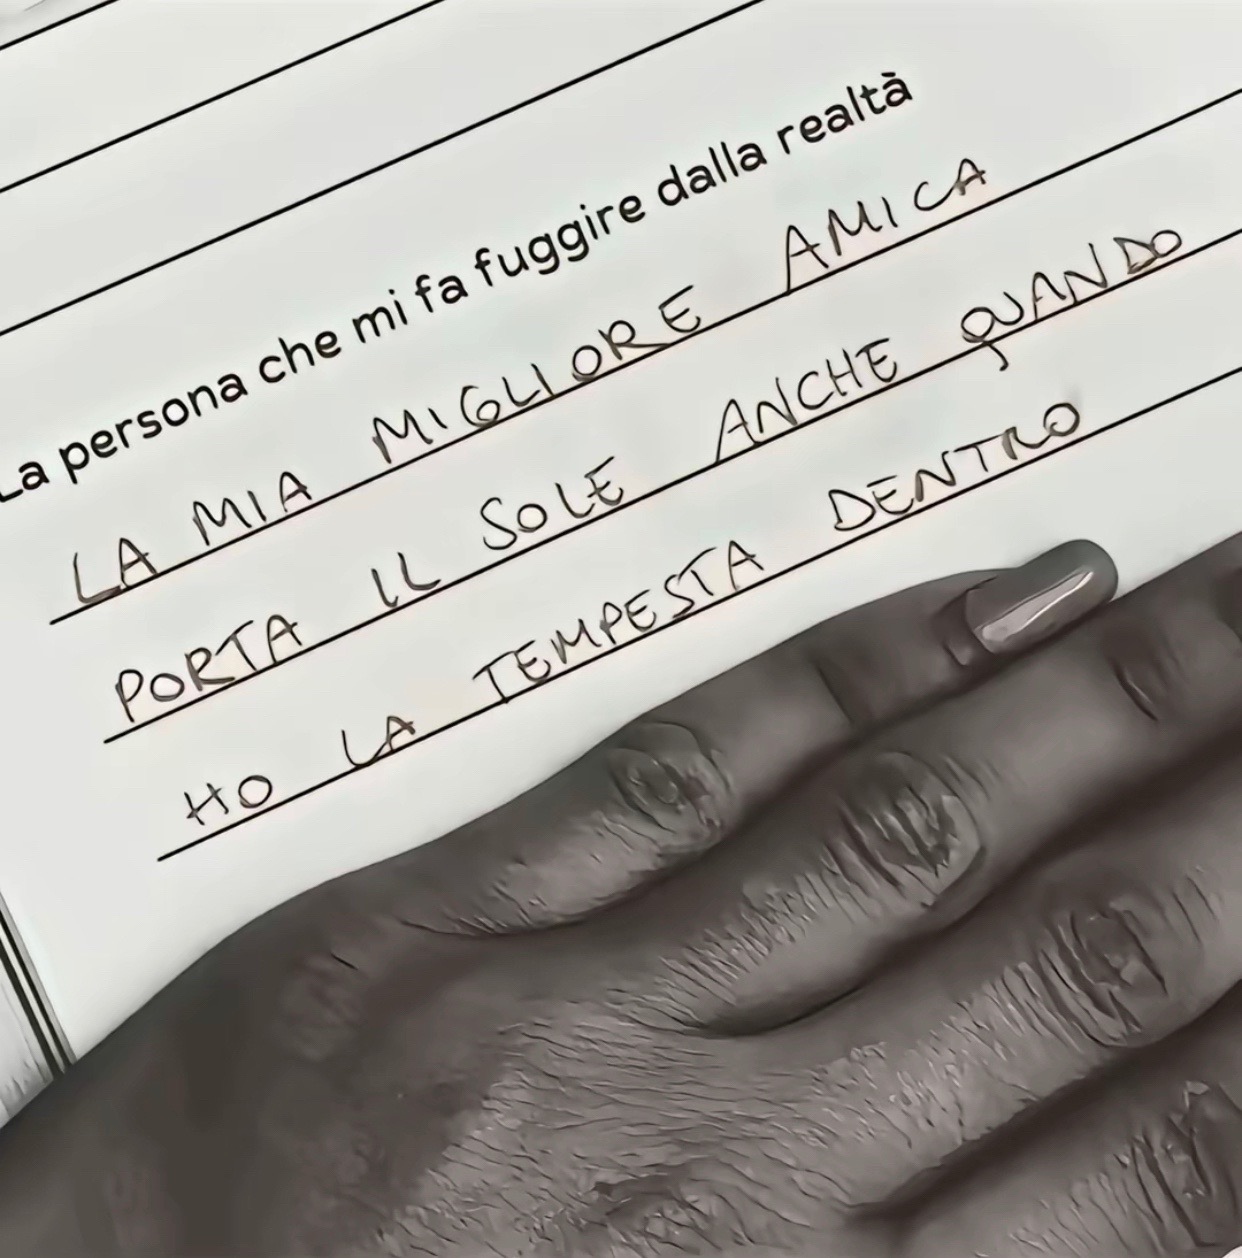 La persona che mi fa fuggire dalla realtà
LA MIA MIGLIORE AMICA
PORTA IL SOLE ANCHE QUANDO
HO LA TEMPESTA DENTRO